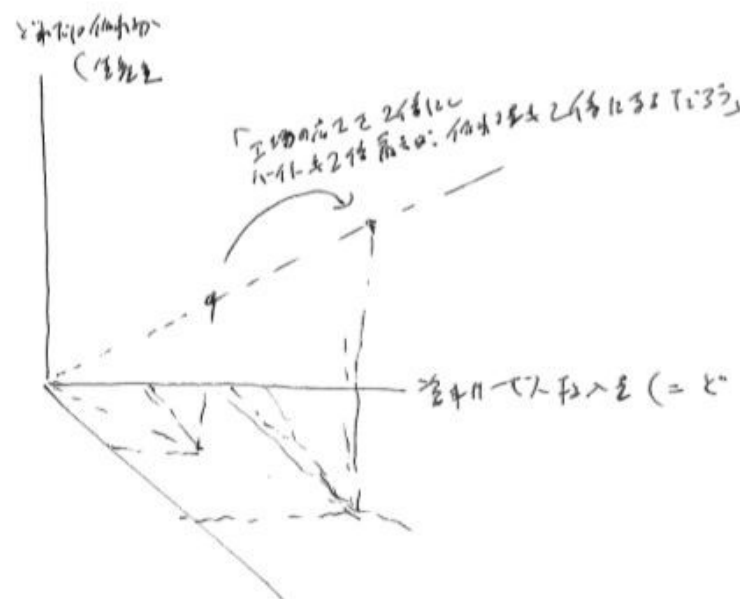 どれだけ作れるか
(生産量
「工場の広さを2倍にし
バイトも2倍雇えば、作れる量も2倍になるだろう」
投入量 (= ど